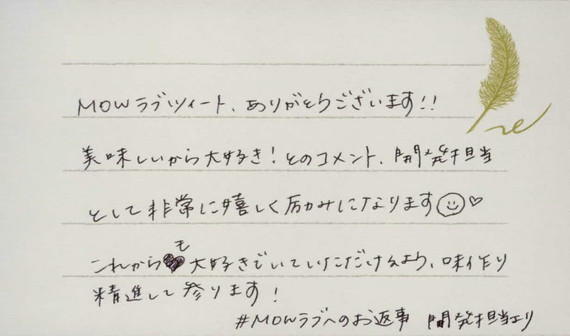 MOWラブツイート、ありがとうございます!!
美味しいから大好き!とのコメント、開発担当
として非常に嬉しく励みになります☺♡
これからも大好きでいていただけるよう、味作り
精進して参ります!
#MOWラブへのお返事 開発担当より